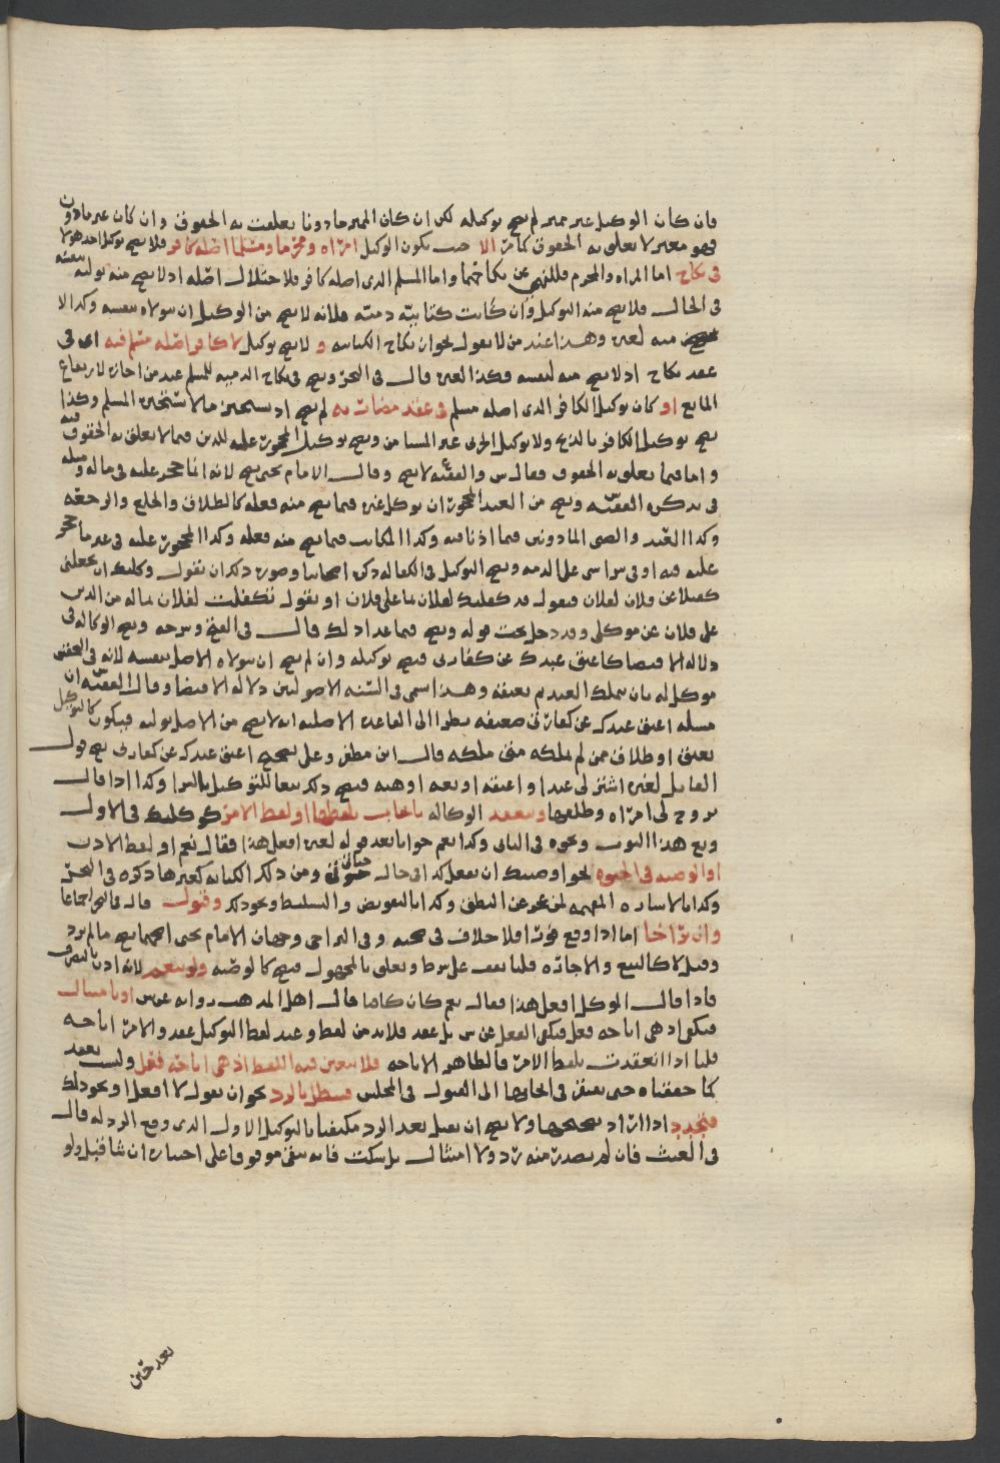 فان كان الوكيل غير مميز لم يصح توكيله لكن ان كان المميز ماذونا تعلقت به الحقوق وان كان غير ماذون
فهو معبر لا تعلق به الحقوق كما مر الا حيث يكون الوكيل امراه ومحرما ومسلما اصله كافر فلا يصح توكيل احد هولا
في نكاح اما المراه والمحرم فللنهي عن نكاحهما واما المسلم الذي اصله كافر فلاختلال اصله اذ لا يصح منه توليه بنفسه
في الحال فلا يصح منه التوكيل وان كانت كتابيه ذميه فلانه لا يصح من الوكيل ان يتولاه بنفسه وكذا لا
يصح منه لغيره وهذا عند من لا يقول بجواز نكاح الكتابيه و لا يصح توكيل لا كافر اصله مسلم فيه اي في
عقد نكاح اذ لا يصح منه لنفسه فكذا لغيره قال في البحر ويصح في نكاح الذميه للمسلم عند من اجازه لارتفاع
المانع او كان توكيل الكافر الذي اصله مسلم في عقد مضاربه لم يصح اذ يستحيز ما لا يستجيز المسلم وكذا
يصح توكيل الكافر بالذبح ولا توكيل الحربي غير المستامن ويصح توكيل المحجور عليه للدين فيما لا تعلق به الحقوق
واما فيما تعلق به الحقوق فقال س والفقيه ع لا يصح وقال الامام يحيى يصح لانه انما حجر عليه في ماله ومثله
في تذكره الفقيه س ويصح من العبد المحجور ان يوكل غيره فيما يصح منه فعله كالطلاق والخلع والرجعه
وكذا العبد والصبي الماذونين فيما اذنا فيه وكذا المكاتب فيما يصح منه فعله وكذا المحجور عليه في غير ما حجر
عليه فيه او في شراء شي على الذمه ويصح التوكيل في الكفاله ذكره اصحابنا وصوره ذلك ان يقول وكلتك ان تجعلني
كفيلا عن فلان لفلان فيقول قد كفلتك لفلان بما على فلان او يقول تكفلت لفلان بماله من الدين
على فلان عن موكلي وقد دخل تحت قوله ويصح فيما عدا ذلك قال في الغيث وشرحه ويصح الوكاله في
دلاله الاقتضا كاعتق عبدك عن كفارتي فيصح توكيله وان لم يصح ان يتولاه الاصل بنفسه لانه في التحقيق
موكل له بان يملك العبد ثم يعتقه وهذا اسمي في السنه الاصوليين دلاله الاقتضا وقال الفقيه س ان
مسله اعتق عبدك عن كفارتي ضعيفه نظرا الى القاعده الاصليه انه لا يصح من الاصل توليه فيكون كالتوكيل
بعتق او طلاق ممن لم يملكه متى ملكه قال ابن مظفر وعلى تصحيح اعتق عبدك عن كفارتي يصح قول
القايل لغيره اشتر لي عبدا واعتقه او بعه او هبه فيصح ذلك تبعا للتوكيل بالشرا وكذا اذا قال
تزوج لي امراه وطلقها وتنعقد الوكاله بايجاب بلفظها او لفظ الامر كوكلتك في الاول
وبع هذا الثوب ونحوه في الثاني وكذا نعم جوابا بعد قوله لغيره افعل هذا فقال نعم او لفظ الاذن
او الوصيه في الحيوه نحو اوصيتك ان تفعل كذا في حال حياتي ومن ذلك الكتابه كغيرها ذكره في البحر
وكذا بالاشاره المفهمه لمن عجز عن النطق وكذا بالتفويض والتسليط ونحو ذلك وقبول قال في البحر اجماعا
وان تراخا اما اذا وقع فورا فلا خلاف في صحته وفي التراخي وجهان الامام يحيى اصحهما يصح ما لم يرد
وقيل لا كالبيع والاجاره قلنا يقف على شرط وتعلق بالمجهول فيصح كالوصيه ولو بنعم لانه اذن بالتصرف
فاذا قال الوكيل افعل هذا فقال نعم كان كافيا قال اهل المذهب دوانه عن س او بامتثال
فيكفي اذ هي اباحه فعل فيكفي الفعل عن س بل عقد فلا بد من لفظ وعند لفظ التوكيل عقد والامر اباحه
قلنا اذا انعقدت بلفظ الامر فالظاهر الاباحه فلا يتعين فيه اللفظ اذ هي اباحه فعل وليست بعقد
كما حققناه حتى يفتقر في ايجابها الى القبول في المجلس فتبطل بالرد نحو ان يقول لا افعل او نحو ذلك
فتجدد اذا اراد تصحيحها ولا يصح ان يقبل بعد الرد مكتفيا بالتوكيل الاول الذي وقع الرد له قال
في الغيث فان لم يصدر منه رد ولا امتثال بل سكت فانه يبقى موقوفا على اختياره ان شا قبل ولو
بعد حين